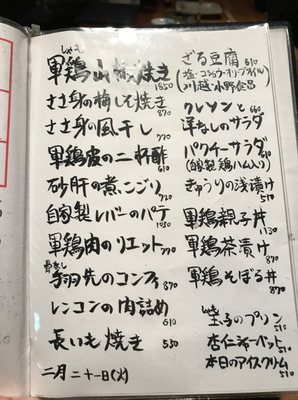 しゃも
軍鶏山椒焼き 1350
ささ身の梅しそ焼き 870
ささ身の風干し 770
軍鶏皮の二杯酢 610
砂肝の煮こごり 720
自家製レバーのパテ 1050
軍鶏肉のリエット 770
骨なし
手羽先のコンフィ 870
レンコンの肉詰め 610
長いも焼き 530
二月二十一日(火)
ざる豆腐 610
(塩・コショウ・オリーブオイル)
川越・小野食品
クレソンと 660
洋なしのサラダ
パクチーサラダ 610
(自家製鶏ハム入り)
きゅうりの浅漬け 510
軍鶏親子丼 1130
軍鶏茶漬け 870
軍鶏そぼろ丼 870
しゃも
玉子のプリン 510
杏仁シャーベット 510
本日のアイスクリーム 510